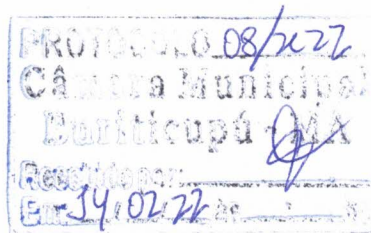 PROTOCOLO 08/2022
Câmara Municipal
Buriticupú - MA
Em 14/02/22